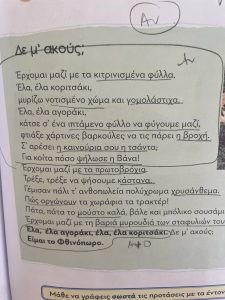 Αν
Δε μ' ακούς;
Αν
Έρχομαι μαζί με τα κιτρινισμένα φύλλα.
Έλα, έλα κοριτσάκι,
μυρίζω νοτισμένο χώμα και γομολάστιχα.
Έλα, έλα αγοράκι,
κάτσε σ' ένα ιπτάμενο φύλλο να φύγουμε μαζί,
φτιάξε χάρτινες βαρκούλες να τις πάρει η βροχή.
Σ' αρέσει η καινούρια σου η τσάντα;
Για κοίτα πόσο ψήλωσε η Βάνα!
Έρχομαι μαζί με τα πρωτοβρόχια.
Τρέξε, τρέξε να ψήσουμε κάστανα.
Γέμισαν πάλι τ' ανθοπωλεία πολύχρωμα χρυσάνθεμα.
Πώς οργώνουν τα χωράφια τα τρακτέρ!
Πάτα, πάτα το μούστο καλά, βάλε και μπόλικο σουσάμι
Έρχομαι μαζί με τη βαριά μυρουδιά των σταφυλιών του
Έλα, έλα αγοράκι, έλα, έλα κοριτσάκι. Δε μ' ακούς;
Είμαι το Φθινόπωρο.
Μάθε να γράφεις σωστά τις προτάσεις με τα έντον